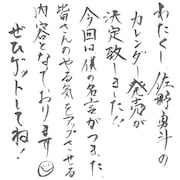 わたくし佐野勇斗の
カレンダー発売が
決定致しました!!
今回は僕の名言がつまった
皆さんのやる気をアップさせる
内容となっております☺
ぜひゲットしてね!